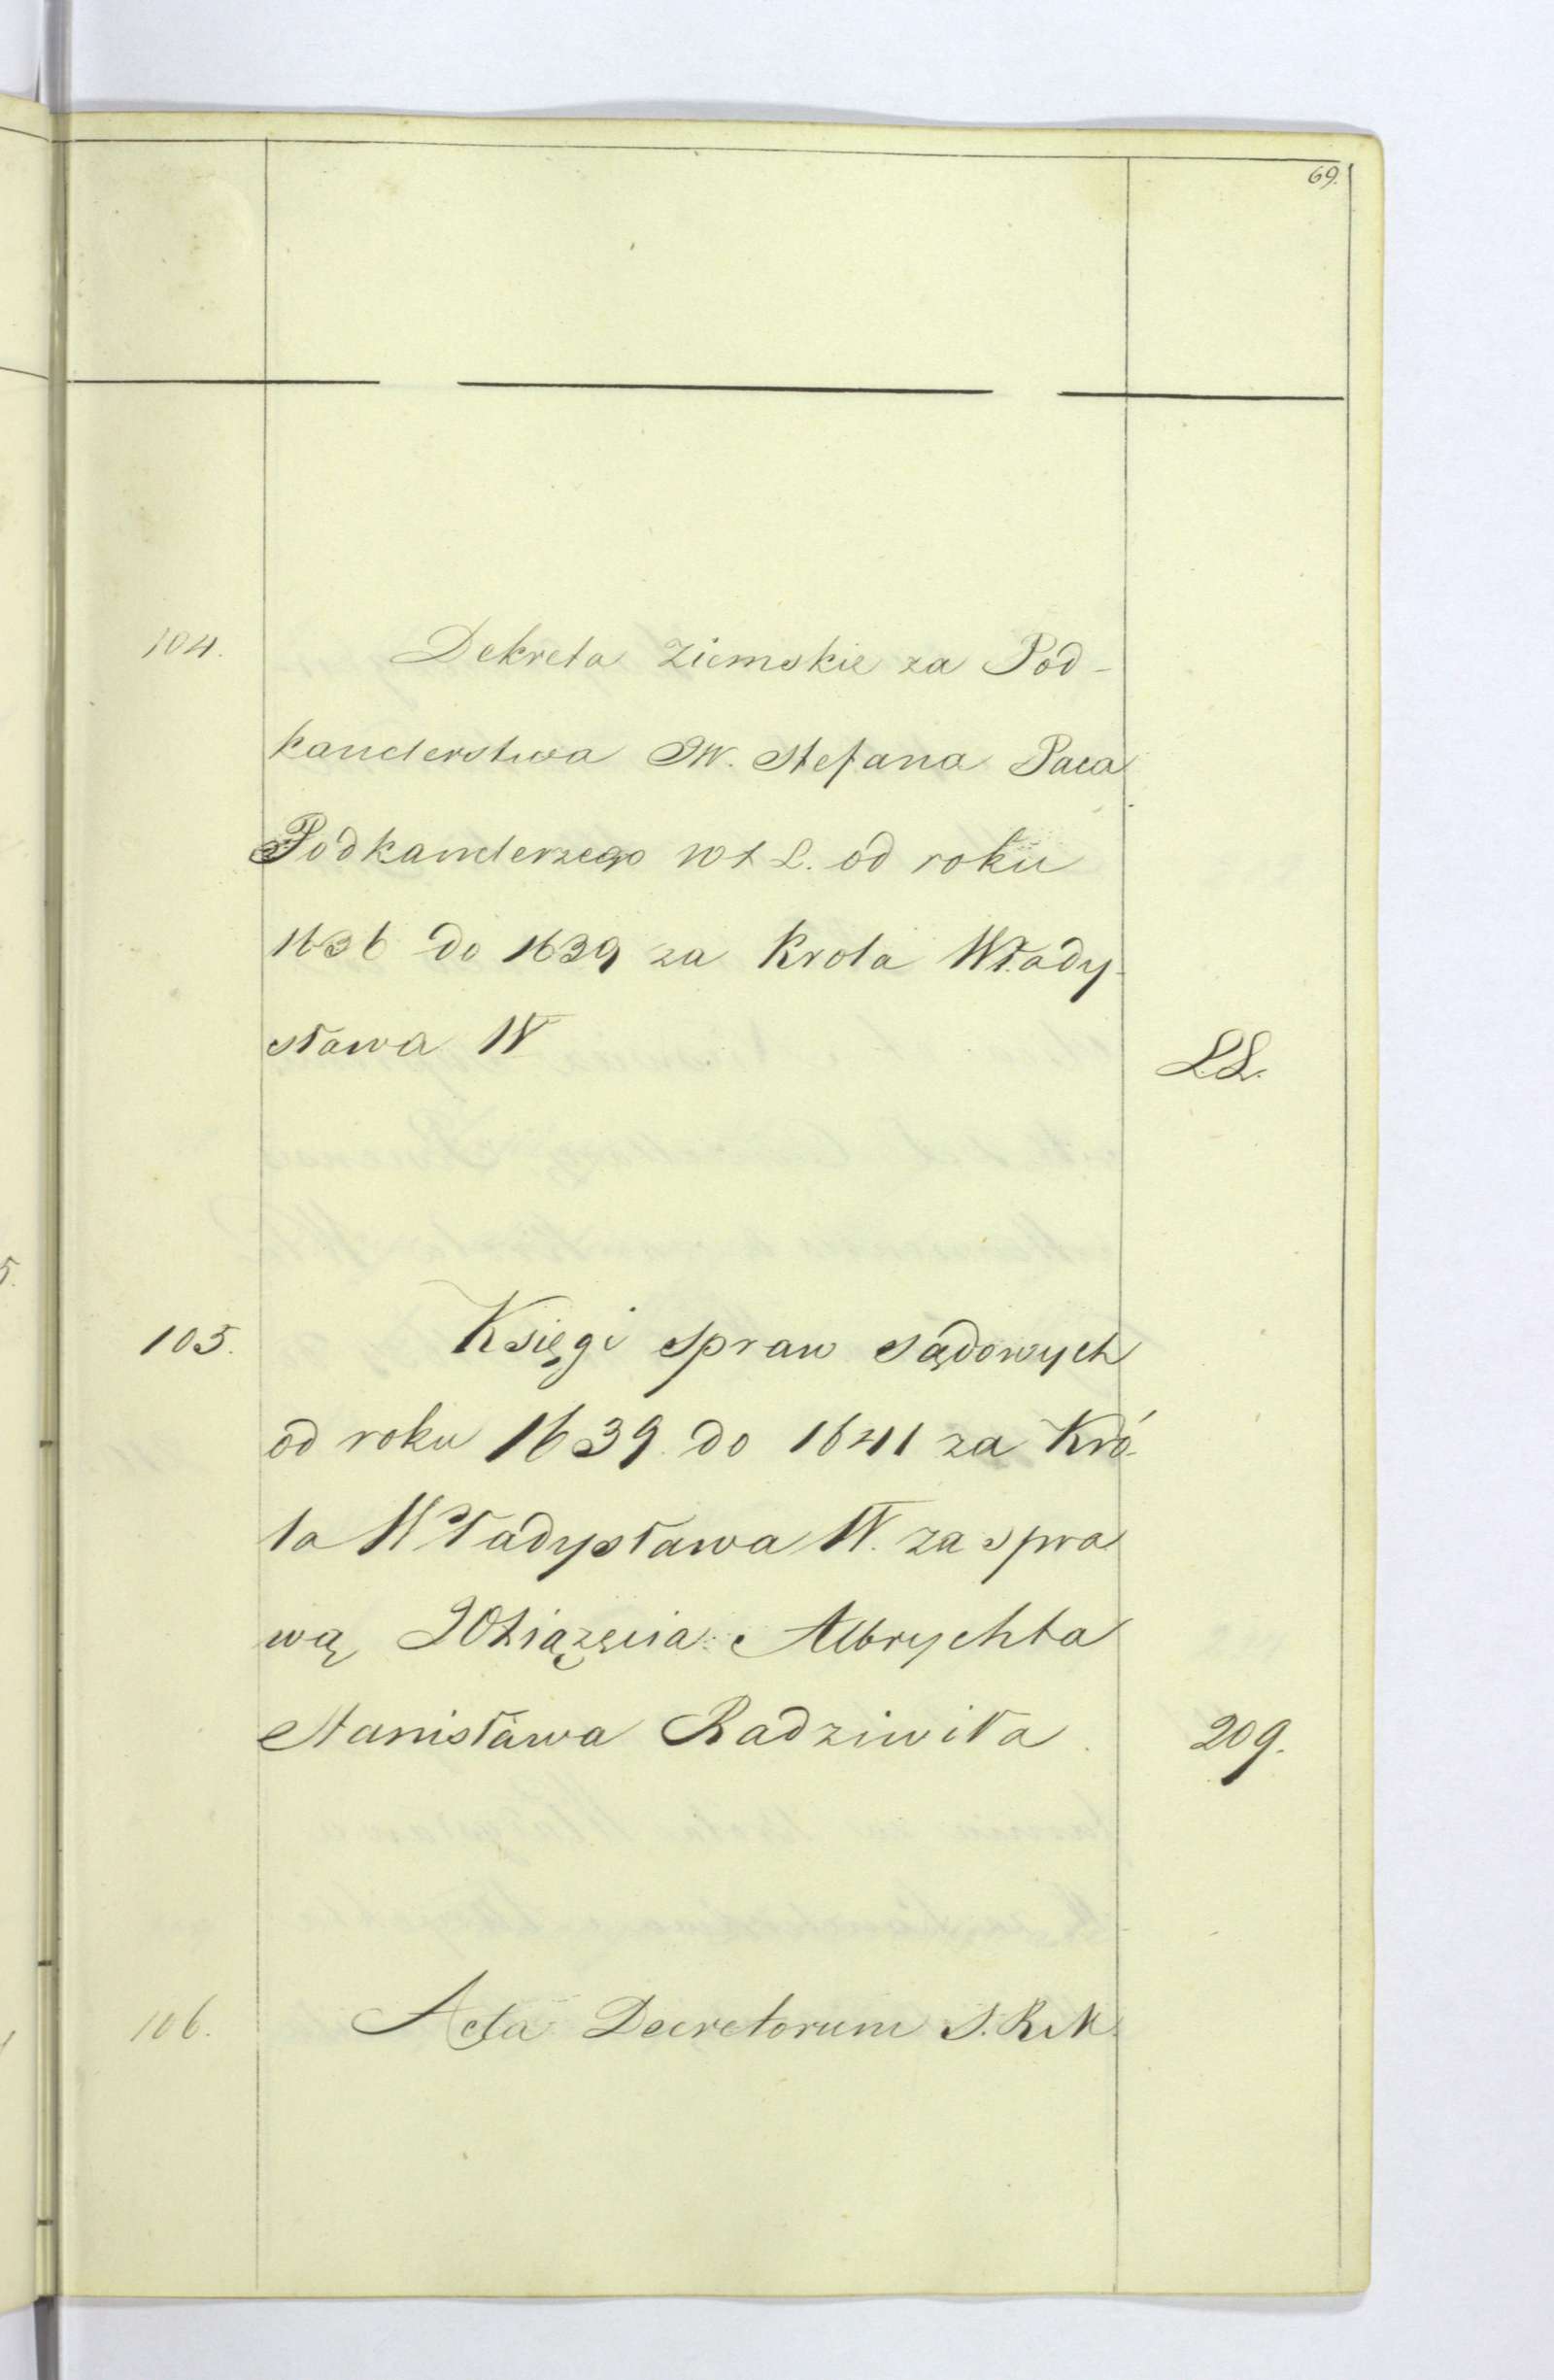 69.
104. Dekreta Ziemskie za Pod-
kanclerstwa JW. Stefana Paca
Podkanclerzego WXL. od roku
1636 do 1639 za Krola Włady-
sława IV
LL.
105. Księgi spraw sądowych
od roku 1639. do 1641 za Kró-
la Władysława IV. za spra
wą XOxiążęcia Albrychta
Stanisława Radziwiła.
209.
106. Acta Decretorum S.R.M.